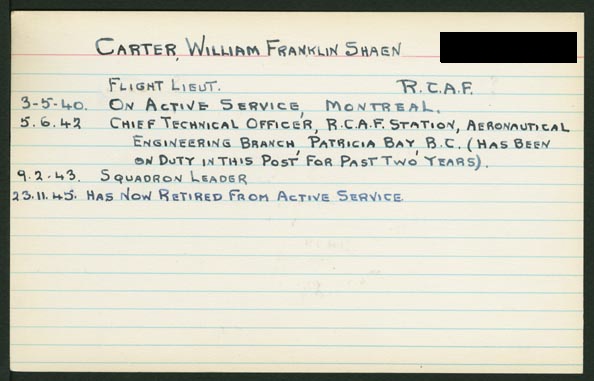 CARTER, WILLIAM FRANKLIN SHAEN
FLIGHT LIEUT. R.C.A.F.
3-5-40. ON ACTIVE SERVICE, MONTREAL.
5.6.42 CHIEF TECHNICAL OFFICER, R.C.A.F. STATION, AERONAUTICAL
ENGINEERING BRANCH, PATRICIA BAY, B.C. (HAS BEEN
ON DUTY IN THIS POST FOR PAST TWO YEARS).
9.2.43. SQUADRON LEADER
23.11.45. HAS NOW RETIRED FROM ACTIVE SERVICE